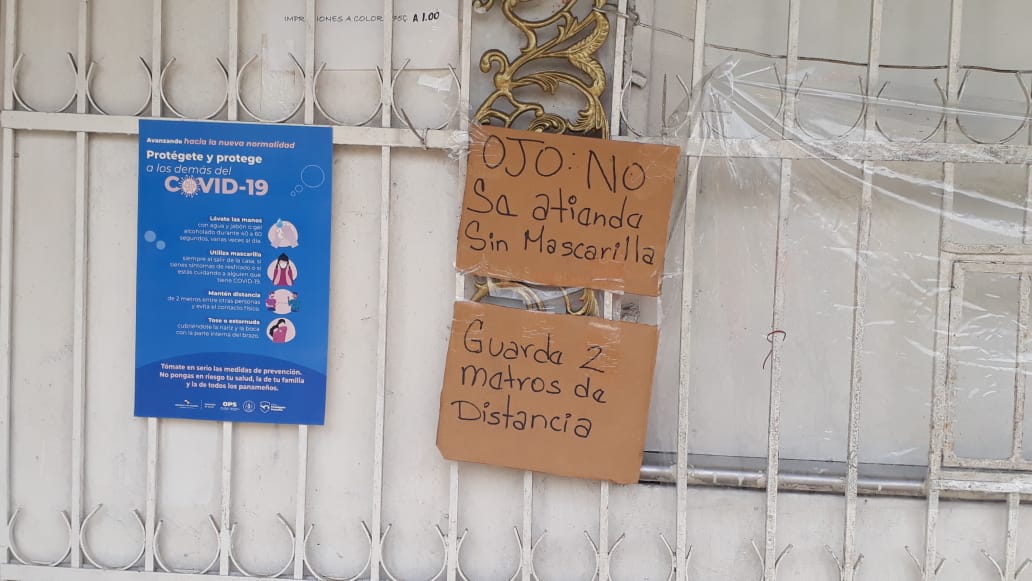 IMPRESIONES A COLOR 75¢ A 1.00
Avanzando hacia la nueva normalidad
Protégete y protege
a los demás del
COVID-19
Lávate las manos
con agua y jabón o gel
alcoholado durante 40 a 60
segundos, varias veces al día.
Utiliza mascarilla
siempre al salir de la casa, si
tienes síntomas de resfriado o si
estás cuidando a alguien que
tiene COVID-19.
Mantén distancia
de 2 metros entre otras personas
y evita el contacto físico.
Tose o estornuda
cubriéndote la nariz y la boca
con la parte interna del brazo.
Tómate en serio las medidas de prevención.
No pongas en riesgo tu salud, la de tu familia
y la de todos los panameños.
OPS
OJO: NO
Se atiende
Sin Mascarilla
Guarde 2
metros de
Distancia